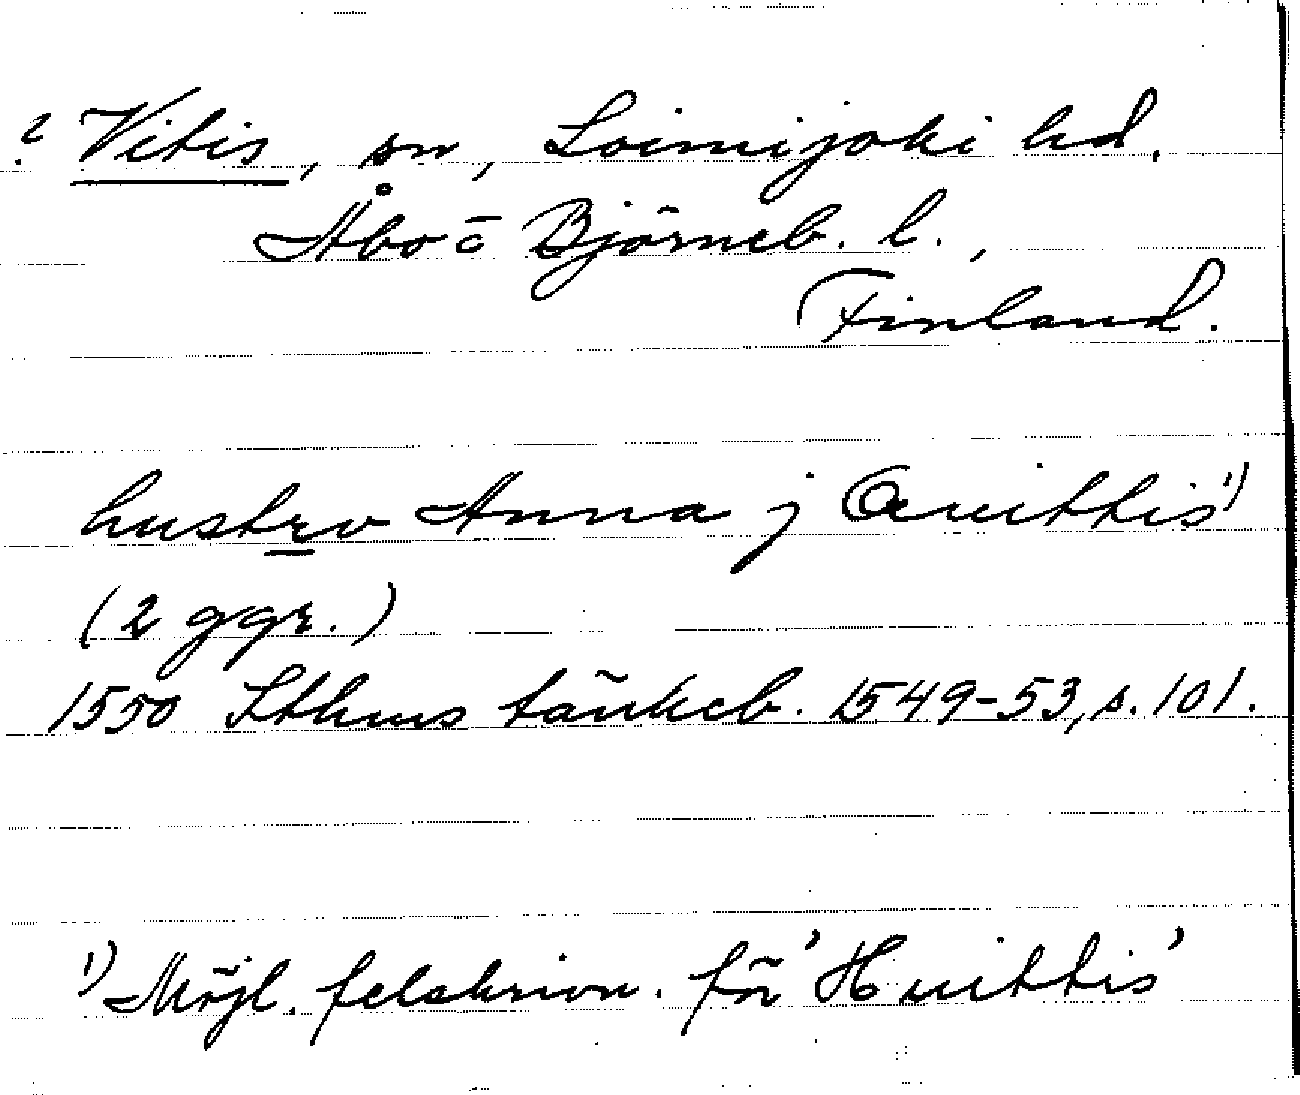 ? Vitis, sn, Loimijoki hd.
Åbo o Björneb. l.,
Finland.
hustrv Anna j Quittis 1)
(2 ggr.)
1550 Sthms tänkeb. 1549-53, s. 101.
1) Möjl. felskrivn. för 'Huittis'